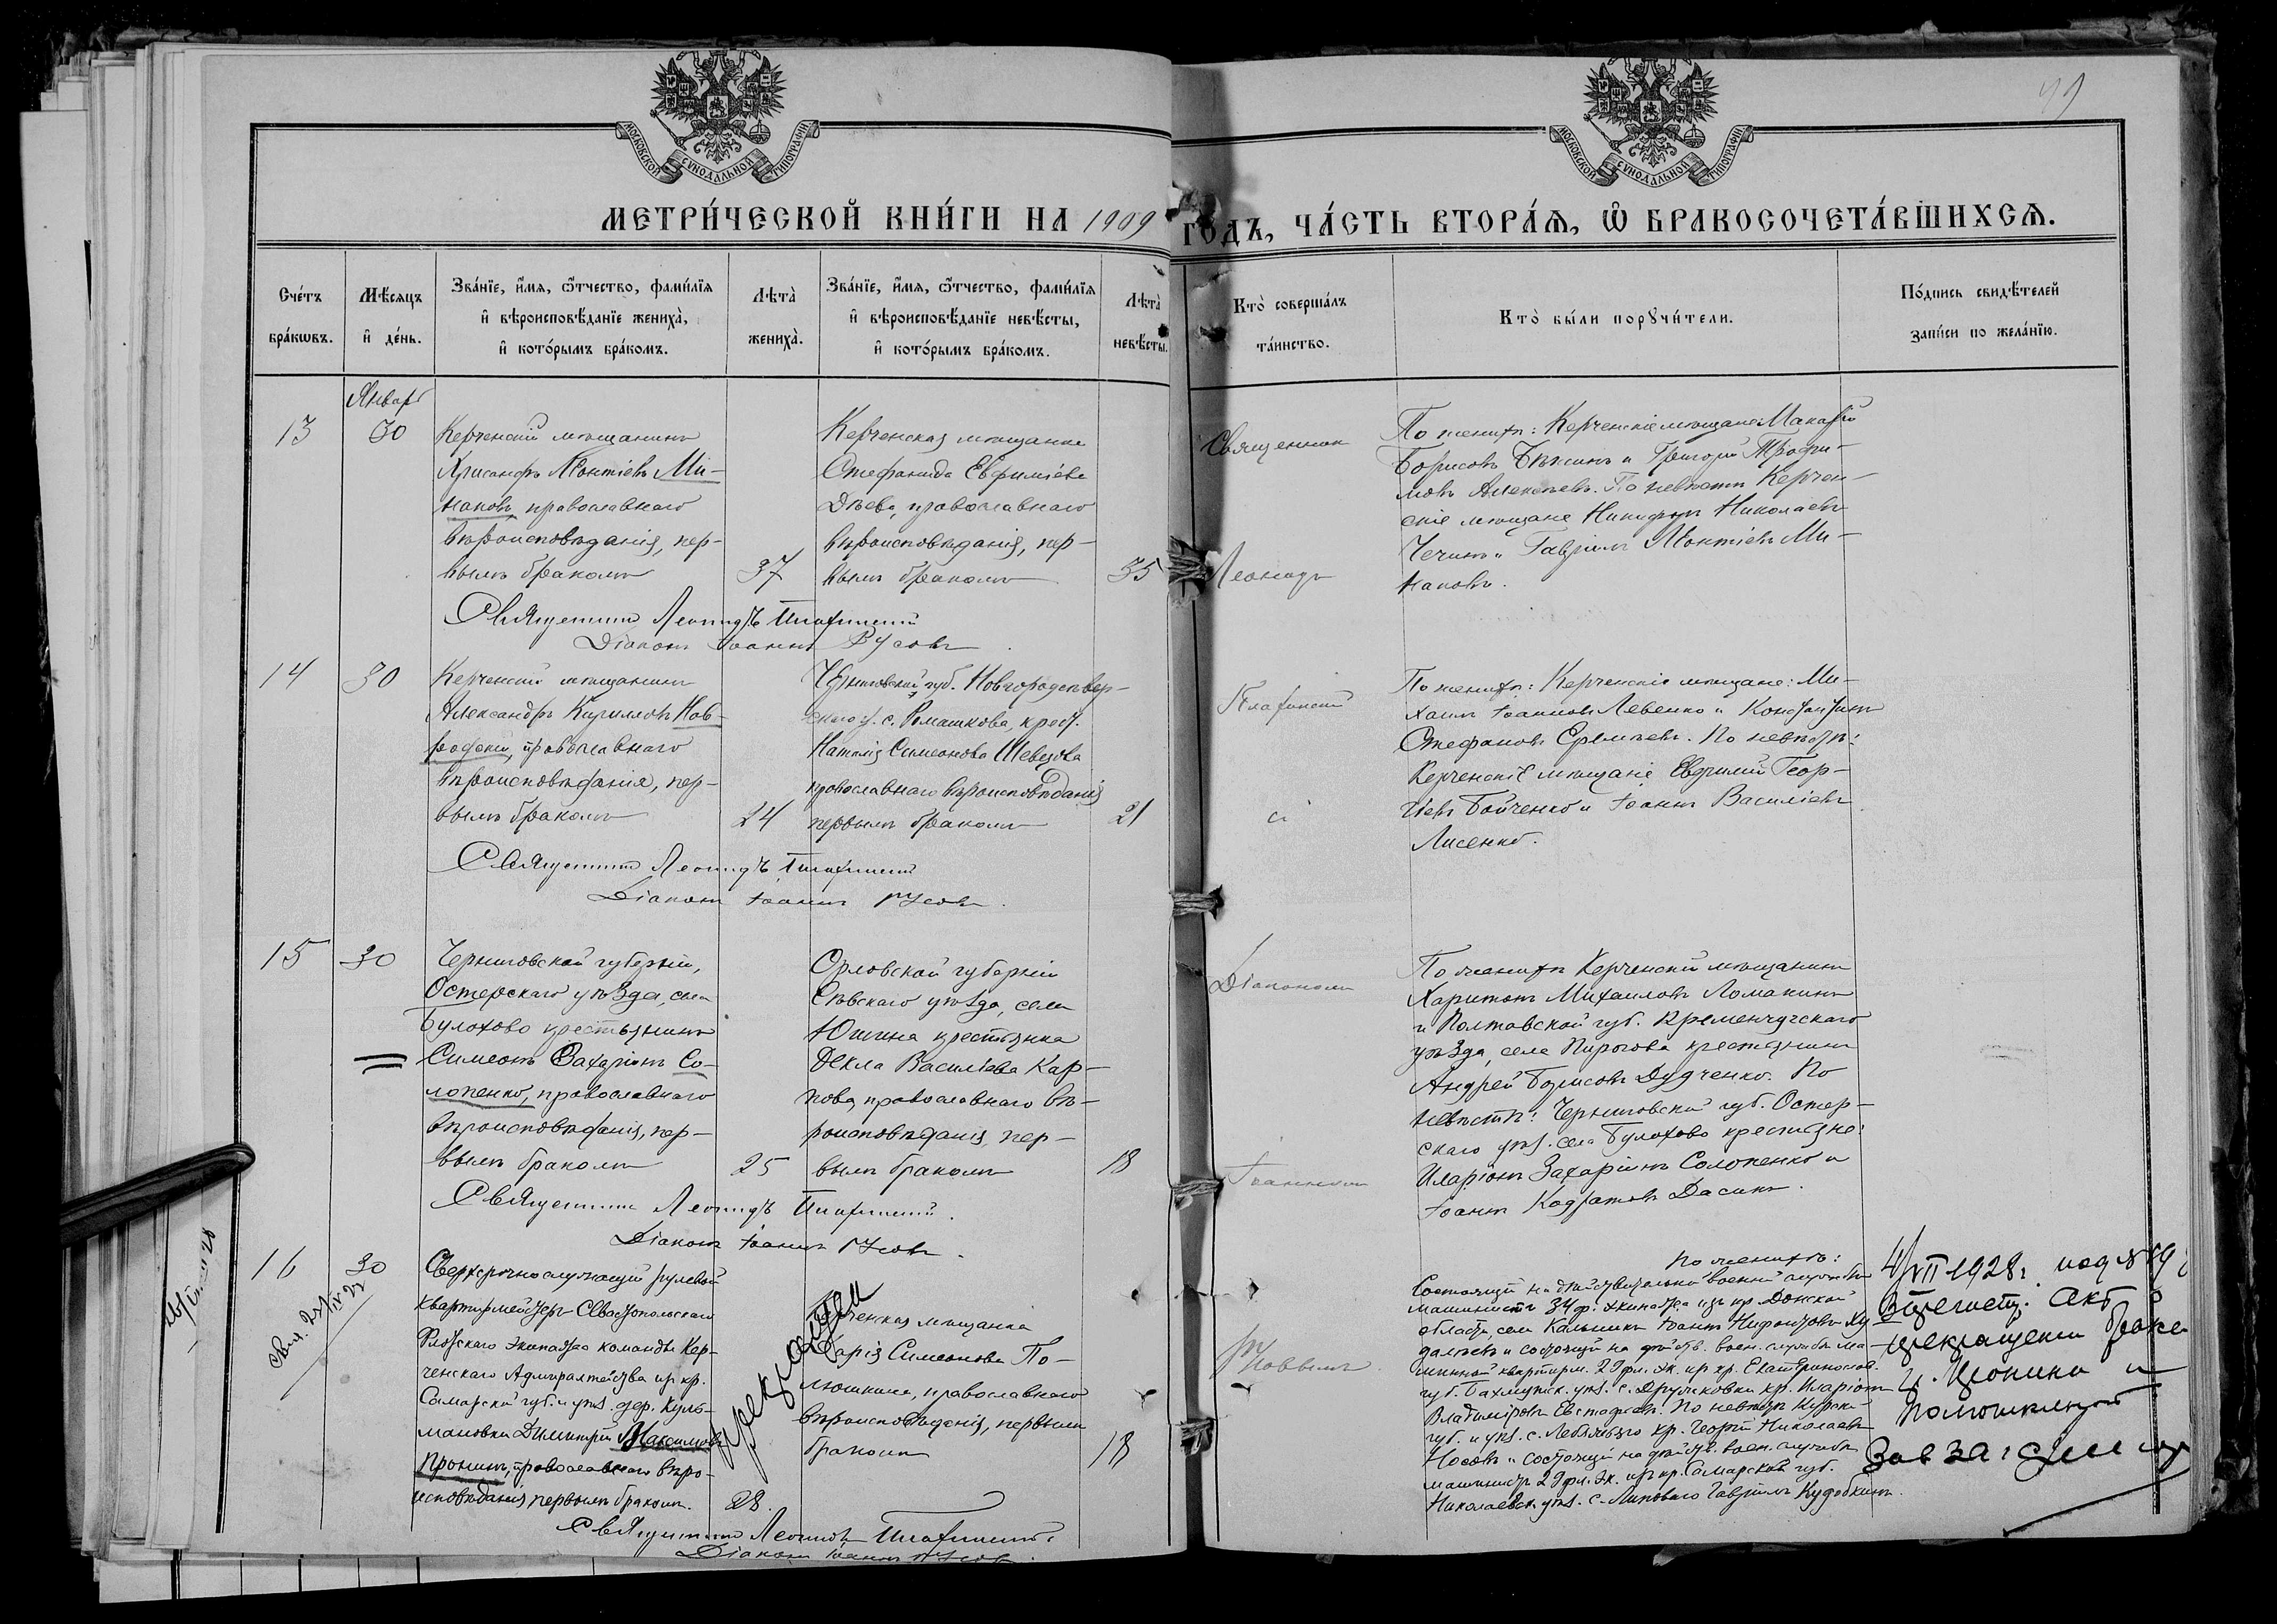 99
МОСКОВСКОЙ СѴНОДАЛЬНОЙ ТИПОГРАФІИ
МОСКОВСКОЙ СѴНОДАЛЬНОЙ ТИПОГРАФІИ
МЕТРИ́ЧЕСКОЙ КНИ́ГИ НА 1909 ГОДЪ, ЧА́СТЬ ВТОРА́Ѧ, Ѽ БРАКОСОЧЕТА́ВШИХСѦ.
Сче́тъ
бра́кѡвъ.
Мѣ́сяцъ
и҆ де́нь.
Зва́нїе, и҆́мя, ѻ҆́тчество, фами́лїя
и҆ вѣроисповѣ́данїе жениха̀,
и҆ кото́рымъ бра́комъ.
Лѣта̀
жениха̀.
Зва́нїе, и҆́мя, ѻ҆́тчество, фами́лїя
и҆ вѣроисповѣ́данїе невѣ́сты,
и҆ кото́рымъ бра́комъ.
Лѣта̀
невѣ́сты.
Кто̀ соверша́лъ
та́инство.
Кто̀ бы́ли порꙋчи́тели.
По́дпись свидѣ́телей
за́писи по жела́нїю.
Январь
13
30
Керченскій мѣщанинъ
Хрисанфъ Леонтіевъ Ми-
наковъ, православнаго
вѣроисповѣданія, пер-
вымъ бракомъ
37
Керченская мѣщанка
Стефанида Евфиміева
Дѣева, православнаго
вѣроисповѣданія, пер-
вымъ бракомъ
35
Священник
Леонидъ
По женихѣ: Керченскіе мѣщане Макарій
Борисовъ и Григорій Трофи-
мовъ Алексѣевъ. По невѣстѣ Керчен-
скіе мѣщане Никифоръ Николаевъ
и Гавріилъ Леонтіевъ Ми-
наковъ.
Священникъ Леонидъ
Діаконъ Іоаннъ Усовъ
14
30
Керченскій мѣщанинъ
Александръ Кирилловъ Нов-
православнаго
вѣроисповѣданія, пер-
вымъ бракомъ
24
Черниговской губ. Новгородсѣвер-
скаго у. с. Ромашкова, крест.
Наталія Симеонова Шевцова
православнаго вѣроисповѣданія
первымъ бракомъ
21
и
По женихѣ: Керченскіе мѣщане: Ми-
хаилъ Іоанновъ Левенко и Константинъ
Стефановъ Еремѣевъ. По невѣстѣ:
Керченскіе мѣщане Евфимій Геор-
гіевъ Бойченко и Іоаннъ Василіевъ
Лисенко.
Священникъ Леонидъ
Діаконъ Іоаннъ Усовъ.
15
30
Черниговской губерніи,
Остерскаго уѣзда, села
Булахово крестьянинъ
Симеонъ Захаріинъ Со-
лопенко, православнаго
вѣроисповѣданія, пер-
вымъ бракомъ
25
Орловской губерніи
Сѣвскаго уѣзда, села
Юшина крестьянка
Ѳекла Василіева Кар-
пова, православнаго вѣ-
роисповѣданія, пер-
вымъ бракомъ
18
Діаконом
Іоанномъ
По женихѣ Керченскій мѣщанинъ
Харитонъ Михаиловъ Ломакинъ
и Полтавской губ. Кременчугскаго
уѣзда, села Пирогова крестьянинъ
Андрей Борисовъ Дудченко. По
невѣстѣ: Черниговской губ. Остер-
скаго уѣз. села Булахово крестьяне:
Иларіонъ Захаріинъ Солопенко и
Іоаннъ Кодратовъ Дасикъ.
Священникъ Леонидъ
Діаконъ Іоаннъ Усовъ.
16
30
Сверхсрочнослужащій рулевой
квартирмейстеръ Севастопольскаго
Флотскаго экипажа команды Кер-
ченскаго Адмиралтейства из кр.
Самарской губ. и уѣз. дер. Куль-
мановки Димитрій Максимовъ
Пронинъ, православнаго вѣро-
исповѣданія первымъ бракомъ.
28.
прекращен
Керченская мѣщанка
Марія Симеонова По-
люшкина, православнаго
вѣроисповѣданія, первымъ
бракомъ
18
Усовымъ.
По женихѣ:
Состоящій на дѣйствительной военной службѣ
машинистъ 34 ф. экипажа изъ кр. Донской
области, села Кальника Іоаннъ Нифонтовъ Ху-
далѣевъ и состоящій на дѣйств. воен. службѣ ма-
шинный квартирм. 29 фл. эк. из кр. Екатеринослав.
губ. Бахмутск. уѣз. с. Дружковки кр. Иларіонъ
Владиміровъ Евстафьевъ. По невѣстѣ Курской
губ. и уѣз. с. Лебяжьяго кр. Георгій Николаевъ
Носовъ и состоящій на дѣйст. воен. службѣ
машинистъ 29 фл. эк. изъ кр. Самарской губ.
Николаевск. уѣз. с. Липоваго Гавріилъ Кудобкинъ.
4/VII 1928 г. под №
регистр. акт о
прекращении брака
гр. Пронина и
Полюшкиной
Зав загсом
Священникъ Леонидъ
Діаконъ Іоаннъ Усовъ.